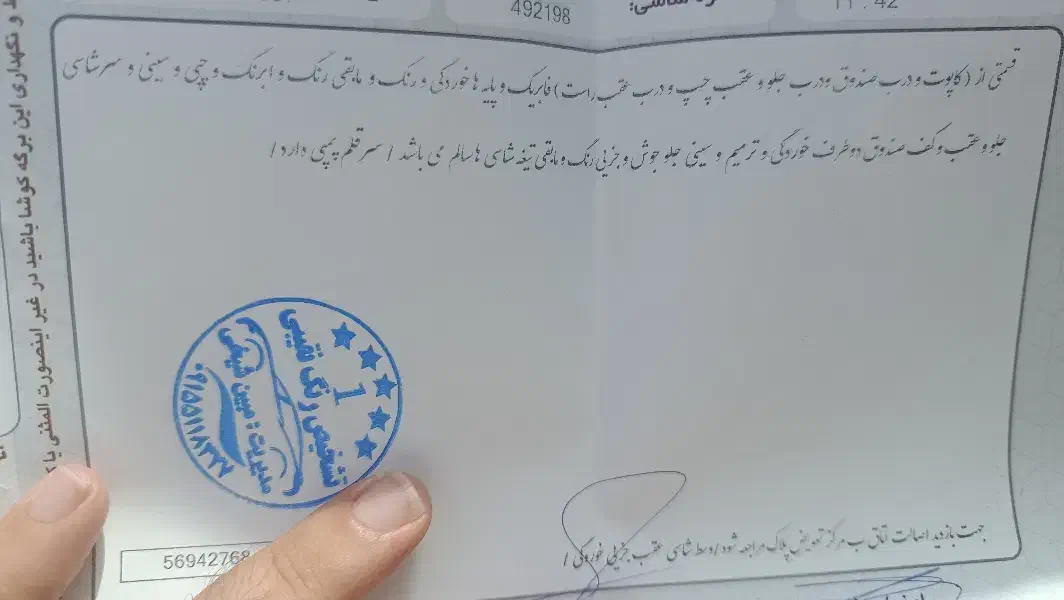 492198
11:42
قسمتی از (کاپوت و درب صندوق و درب جلو و عقب چپ و درب عقب راست) فابریک و پایه ها خوردگی و رنگ و مابقی رنگ و ابرنگ و چپی و سینی و سرشاسی
جلو و عقب و کف صندوق دو طرف خوردگی و ترمیم و سینی جلو جوش و جزیی رنگ و مابقی تیغه شاسی ها سالم می باشد / سر قلم پیمپی دارد /
و نگهداری این برگه کوشا باشید در غیر اینصورت المثنی با
1
تشخیص رنگ نقیبی
مدیریت : مبین
جهت بازدید اصالت اتاق ب مرکز تعویض پلاک مراجعه شود / وسط شاسی عقب جزیی خوردگی /
56942768